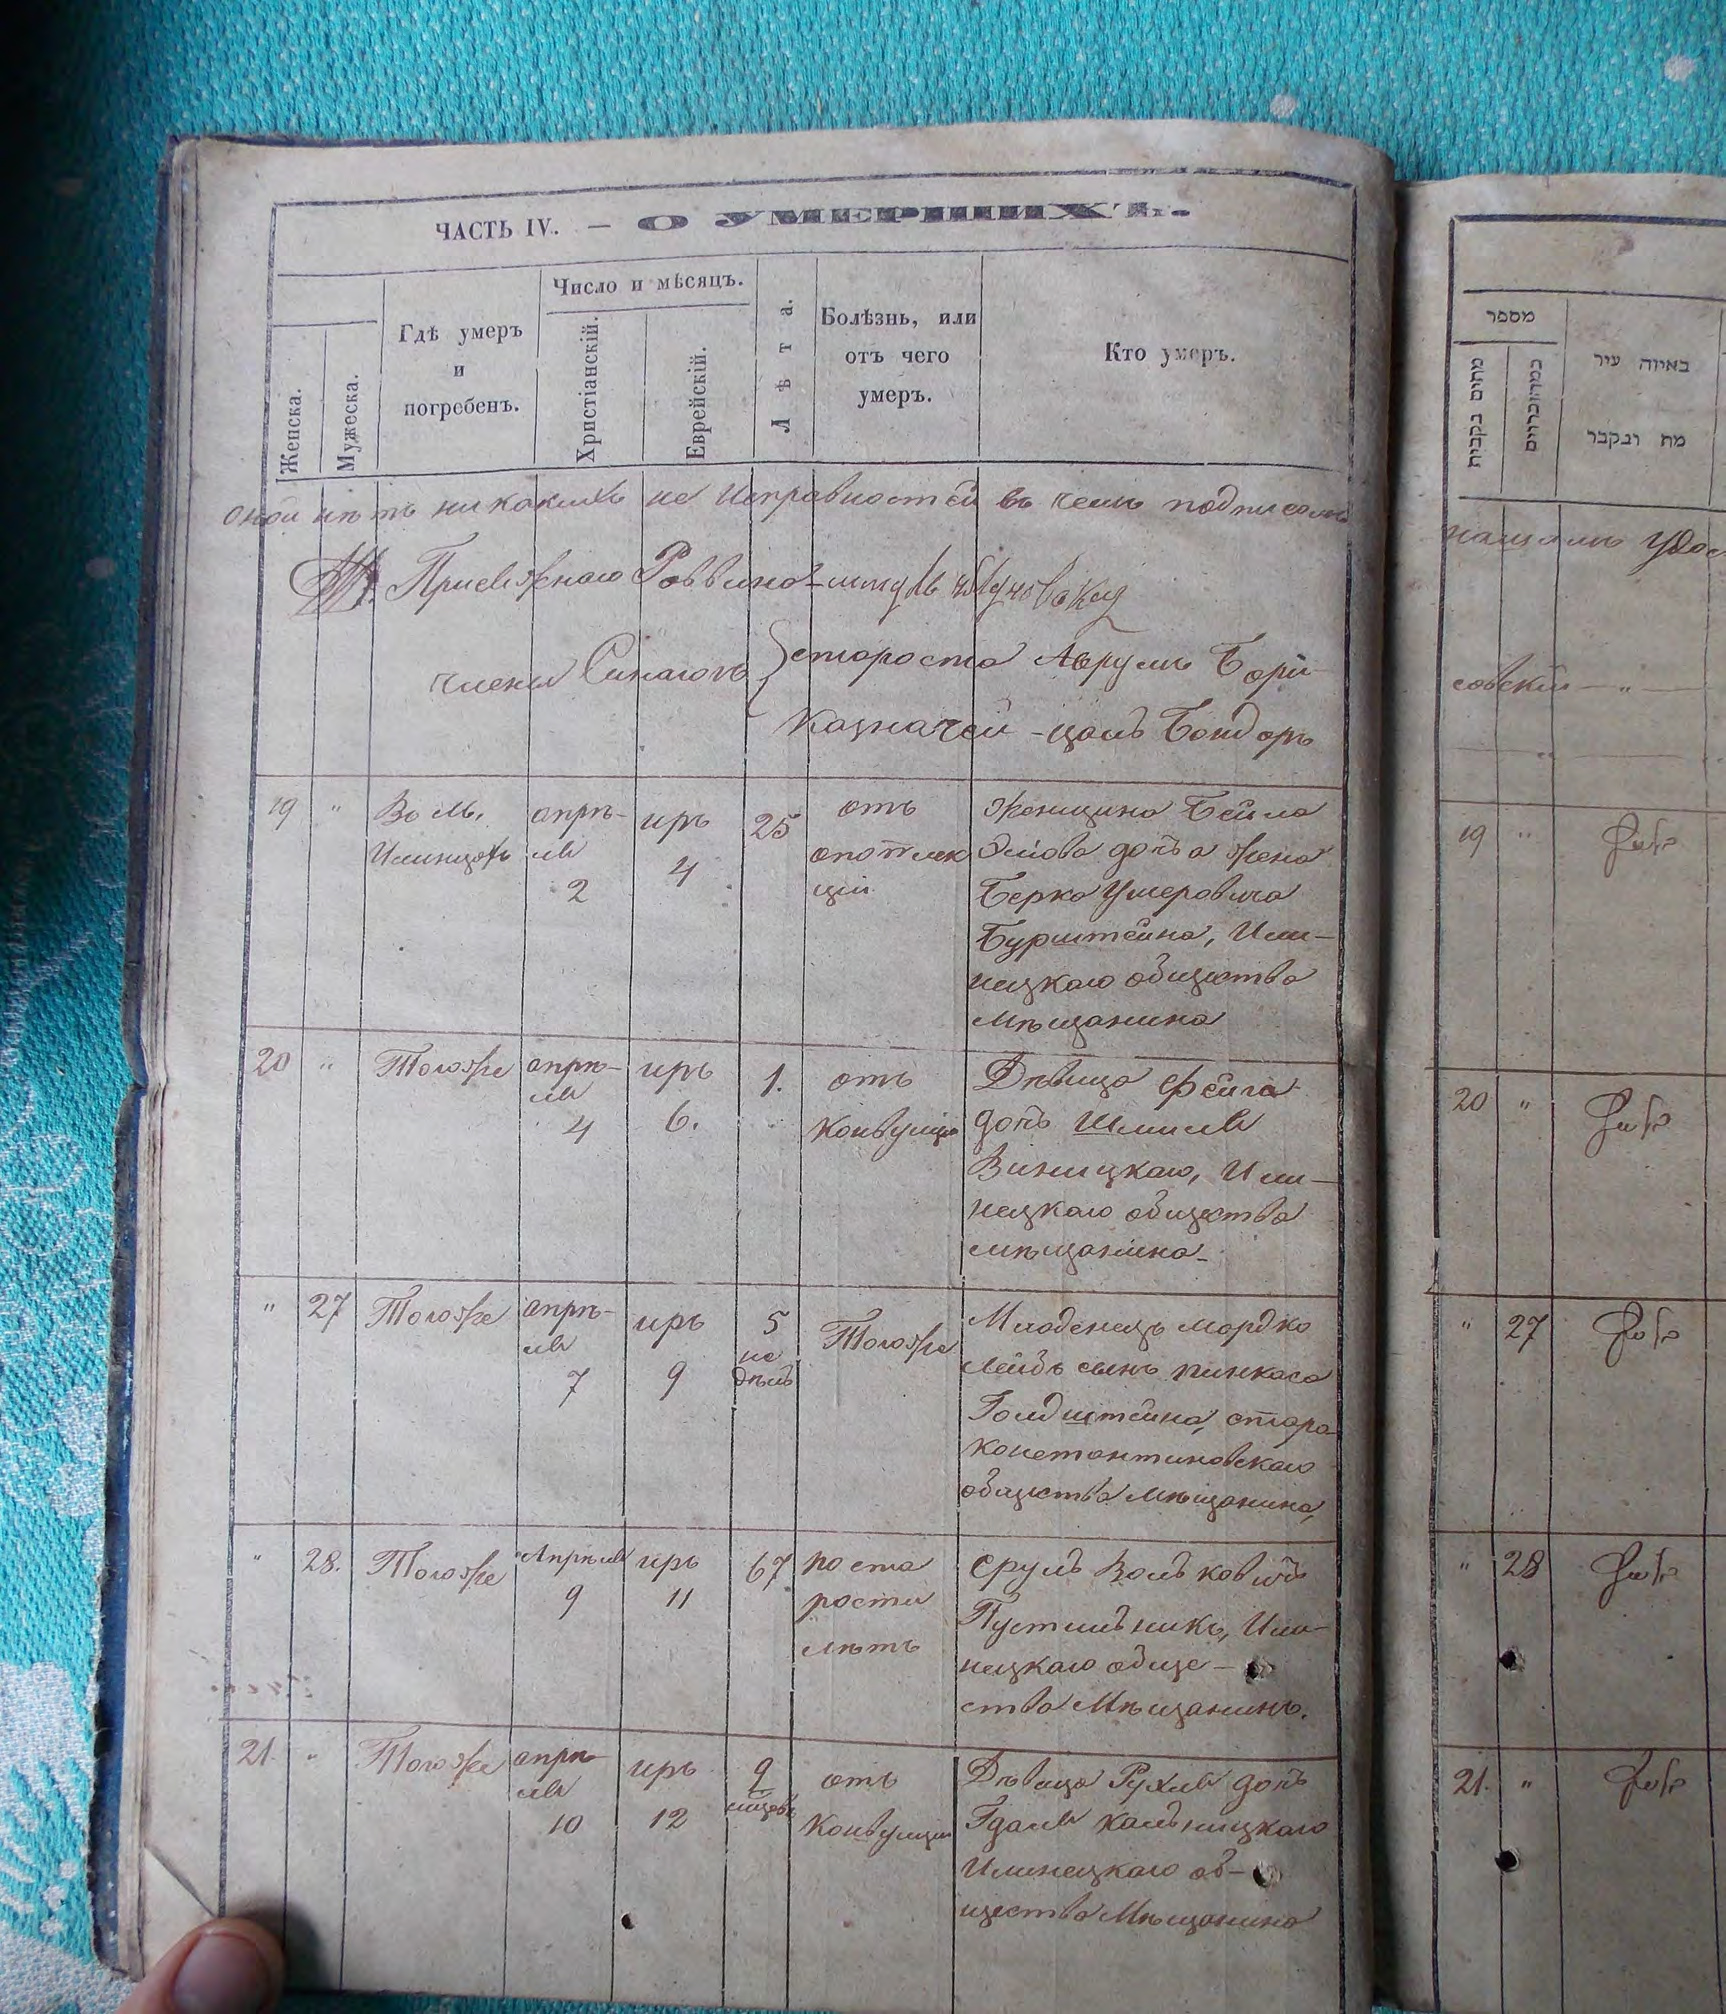 ЧАСТЬ IV. — О УМЕРШИХЪ.
Женска.
Мужеска.
Гдѣ умеръ
и
погребенъ.
Число и мѣсяцъ.
Христіанскій.
Еврейскій.
Лѣта.
Болѣзнь, или
отъ чего
умеръ.
Кто умеръ.
оной нѣтъ никакихъ не исправностей въ чемъ подписомъ
Присяжнаго Раввина
члены Синагогъ
староста Аврумъ Бори-
казначей - цаль Бондарь
19 "
Въ м.
Илинцахъ
апрѣ-
ля
2
иръ
4
25
отъ
апоплек
ціи
Женщина Бейла
Эліова дочь а жена
Берка Умеровича
Бурштейна, Или-
нецкаго общества
Мѣщанина
20 "
Тогоже
апрѣ-
ля
4
иръ
6.
1.
отъ
конвульціи
Дѣвица Фейга
дочь Шмиля
Виницкаго, Или-
нецкаго общества
мѣщанина-
" 27
Тогоже
апрѣ-
ля
7
иръ
9
5
не
дѣль
Тогоже
Младенецъ мордко
Лейбъ сынъ пинкаса
Голдштейна, старо
константиновскаго
общества мѣщанина,
" 28.
Тогоже
Апрѣля
9
иръ
11
67
по ста
рости
лѣтъ
Срулъ Вольковичъ
Пустильникъ, Или-
нецкаго обще-
ства Мѣщанинъ.
21. "
Тогоже
апрѣ-
ля
10
иръ
12
9
отъ
Конвульціи
Дѣвица Рухля дочь
Гдаля Кальницкаго
Илинецкаго об-
щества Мѣщанина
מספר
באיזה עיר
מת ונקבר
совскій — " —
19 "
20 "
" 27
" 28
21. "